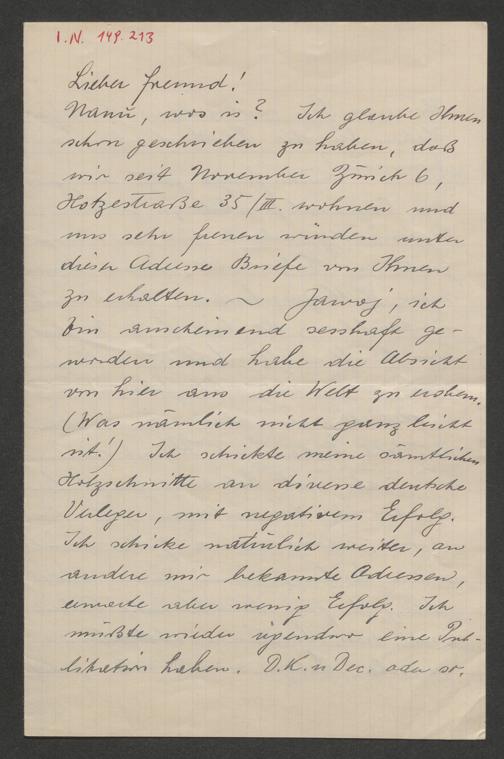 I.N. 149.213
Lieber Freund!
Nanu, was is? Ich glaube Ihnen
schon geschrieben zu haben, daß
wir seit November Zürich 6,
Hotzestraße 35/III. wohnen und
uns sehr freuen würden unter
dieser Adresse Briefe von Ihnen
zu erhalten. ~ Jawoj, ich
bin anscheinend sesshaft ge-
worden und habe die Absicht
von hier aus die Welt zu erobern.
(Was nämlich nicht ganz leicht
ist!) Ich schickte meine sämtlichen
Holzschnitte an diverse deutsche
Verleger, mit negativem Erfolg.
Ich schicke natürlich weiter, an
andere mir bekannte Adressen,
erwarte aber wenig Erfolg. Ich
müßte wieder irgendwo eine Pub-
likation haben. D.K.u Dec. oder so.